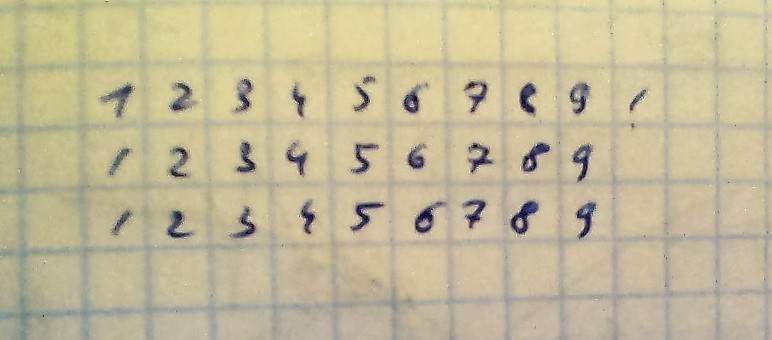 1 2 3 4 5 6 7 8 9
1 2 3 4 5 6 7 8 9
1 2 3 4 5 6 7 8 9